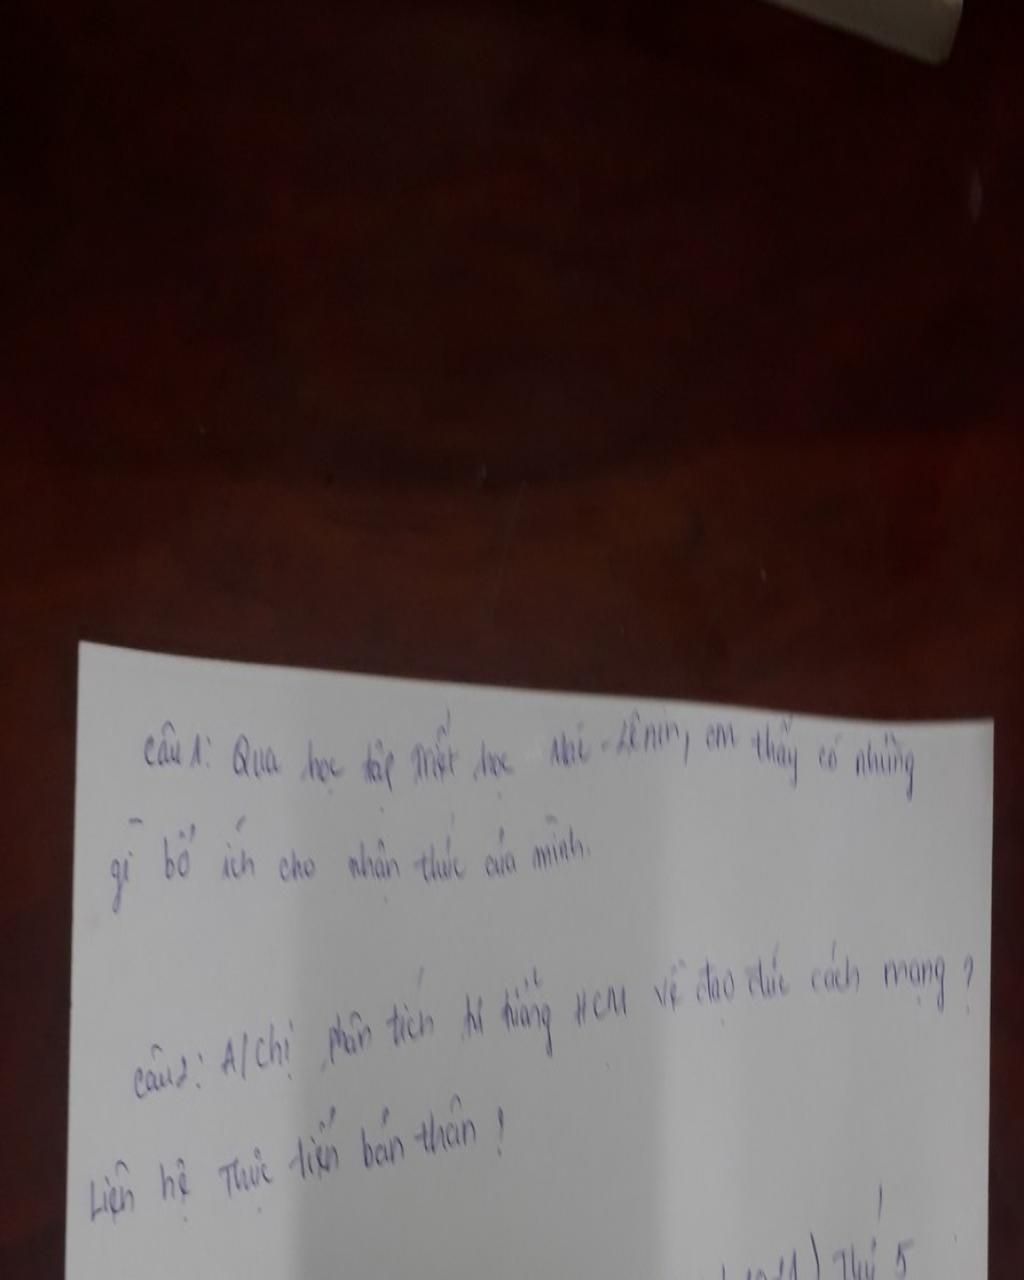 Câu 1: Qua học tập triết học Mác - Lênin, em thấy có những
gì bổ ích cho nhận thức của mình.
Câu 2: A/Chị phân tích tư tưởng HCM về đạo đức cách mạng ?
Liên hệ thực tiễn bản thân !
Thứ 5